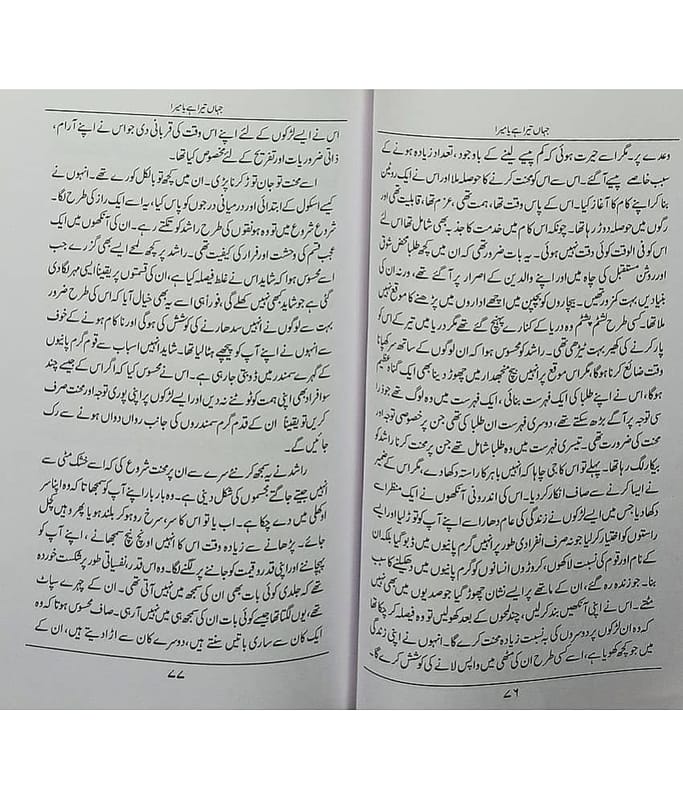 جہاں تیرا ہے یا میرا
وعدے پر۔ مگر اسے حیرت ہوئی کہ کم پیسے لینے کے باوجود، تعداد زیادہ ہونے کے
سبب خاصے پیسے آ گئے۔ اس سے اس کو محنت کرنے کا حوصلہ ملا اور اس نے ایک روٹین
بنا کر اپنے کام کا آغاز کیا۔ اس کے پاس وقت تھا، ہمت تھی، عزم تھا، قابلیت تھی اور
رگوں میں حوصلہ دوڑ رہا تھا۔ چونکہ اس کام میں خدمت کا جذبہ بھی شامل تھا اس لئے
اس کو فی الوقت کوئی وقت نہیں ہوئی۔ یہ بات ضرور تھی کہ ان میں کچھ طلبا محض شوق
اور روشن مستقبل کی چاہ میں اور اپنے والدین کے اصرار پر آ گئے تھے، ورنہ ان کی
بنیادیں بہت کمزور تھیں۔ بیچاروں کو بچپن میں اچھے اداروں میں پڑھنے کا موقع نہیں
ملا تھا۔ کسی طرح لشٹم پشٹم وہ دریا کے کنارے پہنچ گئے تھے مگر دریا میں تیر کے اس
پار کرنے کی کھیر بہت ٹیڑھی تھی۔ راشد کو محسوس ہوا کہ ان لوگوں کے ساتھ سر کھپانا
وقت ضائع کرنا ہوگا، مگر اس موقع پر انہیں بیچ منجھدار میں چھوڑ دینا بھی ایک گناہ عظیم
ہوگا، اس نے اپنے طلبا کی ایک فہرست بنائی، ایک فہرست میں وہ لوگ تھے جو ذرا
سی توجہ پر آگے بڑھ سکتے تھے، دوسری ان طلبا کی تھی جن پر خصوصی توجہ اور
محنت کی ضرورت تھی۔ تیسری فہرست میں وہ طلبا شامل تھے جن پر محنت کرنا راشد کو
بیکار لگ رہا تھا۔ پہلے تو اس کا جی چاہا کہ انہیں باہر کا راستہ دکھا دے، مگر اس کے ضمیر
نے ایسا کرنے سے صاف انکار کر دیا۔ اس کی اندرونی آنکھوں نے ایک منظر اسے
دکھا دیا جس میں ایسے لڑکوں نے زندگی کی عام دھارا سے اپنے آپ کو توڑ لیا اور ایسے
راستوں کو اختیار کر لیا جو نہ صرف انفرادی طور پر انہیں گرم پانیوں میں ڈبو گیا بلکہ ان
کے نام اور قوم کی نسبت لاکھوں، کروڑوں انسانوں کو گرم پانیوں میں دھکیلنے کا سبب
بنا۔ جو زندہ رہ گئے، ان کے ماتھے پر ایسے نشان چھوڑ گیا جو صدیوں میں بھی نہیں
مٹتے۔ اس نے اپنی آنکھیں بند کر لیں، چند لمحوں کے بعد کھولیں تو وہ فیصلہ کر چکا تھا
کہ وہ ان لڑکوں پر دوسروں کی بہ نسبت زیادہ محنت کرے گا۔ انہوں نے اپنی زندگی
میں جو کچھ کھویا ہے، اسے کسی طرح ان کی مٹھی میں واپس لانے کی کوشش کرے گا۔
۷۶
جہاں تیرا ہے یا میرا
اس نے ایسے لڑکوں کے لئے اپنے اس وقت کی قربانی دی جو اس نے اپنے آرام،
ذاتی ضروریات اور تفریح کے لئے مخصوص کیا تھا۔
اسے محنت تو جان توڑ کرنا پڑی۔ ان میں کچھ تو بالکل کورے تھے۔ انہوں نے
کیسے اسکول کے ابتدائی اور درمیانی درجوں کو پاس کیا، یہ اسے ایک راز کی طرح لگا۔
شروع شروع میں تو وہ ہونقوں کی طرح راشد کو تکتے رہے۔ ان کی آنکھوں میں ایک
عجب قسم کی وحشت اور فرار کی کیفیت تھی۔ راشد پر کچھ لمحے ایسے بھی گزرے جب
اسے محسوس ہوا کہ شاید اس نے غلط فیصلہ کیا ہے، ان کی قسمتوں پر یقیناً ایسی مہر لگا دی
گئی ہے جو شاید بھی نہیں کھلے گی، فوراً ہی اسے یہ بھی خیال آیا کہ اس کی طرح ضرور
بہت سے لوگوں نے انہیں سدھارنے کی کوشش کی ہوگی اور ناکام ہونے کے خوف
سے انہوں نے اپنے آپ کو پیچھے ہٹا لیا تھا۔ شاید انہیں اسباب سے قوم گرم پانیوں
کے گہرے سمندر میں ڈوبتی جا رہی ہے۔ اس نے محسوس کیا کہ اگر اس کے جیسے چند
سو افراد بھی اپنی ہمت کو ٹوٹنے نہ دیں اور ایسے لڑکوں پر اپنی پوری توجہ اور محنت صرف
کریں تو یقیناً ان کے قدم گرم سمندروں کی جانب رواں دواں ہونے سے رک
جائیں گے۔
راشد نے یہ سمجھ کر نئے سرے سے ان پر محنت شروع کی کہ اسے خشک مٹی سے
انہیں جیتے جاگتے مجسموں کی شکل دینی ہے۔ وہ بار بار اپنے آپ کو سمجھاتا کہ وہ اپنا سر
اوکھلی میں دے چکا ہے۔ اب یا تو اس کا سر، سرخ رو ہو کر بلند ہو یا پھر وہیں کچل
جائے۔ پڑھانے سے زیادہ وقت اس کا انہیں اونچ نیچ سمجھانے، اپنے آپ کو
پہچاننے اور اپنی قدر و قیمت کو جاننے پر لگنے لگا۔ وہ اس قدر نفسیاتی طور پر شکست خوردہ
تھے کہ جلدی کوئی بات بھی ان کی سمجھ میں نہیں آتی تھی۔ ان کے چہرے سپاٹ
تھے، یوں لگتا تھا جیسے کوئی بات ان کی سمجھ ہی میں نہیں آ رہی۔ صاف محسوس ہوتا کہ وہ
ایک کان سے ساری باتیں سنتے ہیں، دوسرے کان سے اڑا دیتے ہیں، ان کے
۷۷